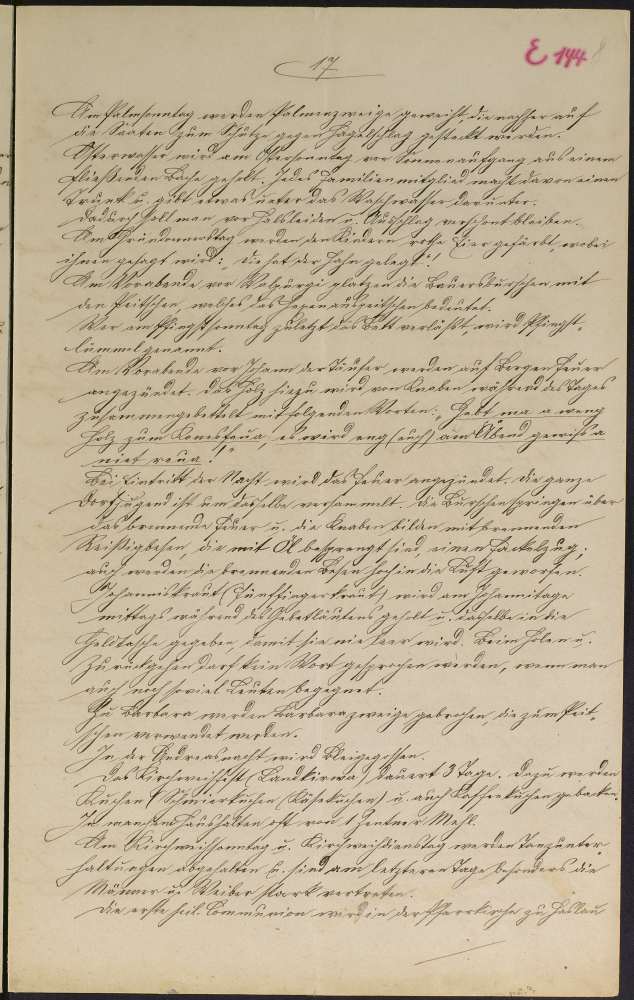 17
E 144
Am Palmsonntag werden Palmenzweige geweiht, die nachher auf
die Saaten zum Schutze gegen Hagelschlag gesteckt werden.
Osterwasser wird am Ostersonntag vor Sonnenaufgang aus einem
fließenden Bache geholt. Jedes Familienmitglied macht davon einen
Trunk u. gibt etwas unter das Waschwasser darunter.
Dadurch soll man vor Halsleiden u. Ausschlag verschont bleiben.
Am Gründonnerstag werden den Kindern rothe Eier gefärbt, wobei
ihnen gesagt wird: „die hat der Hahn gelegt"!
Am Vorabende vor Walpurgi platzen die Bauersburschen mit
den Peitschen, welches das Hexenauspeitschen bedeutet.
Wer am Pfingstsonntag zuletzt das Bett verläßt, wird Pfingst-
lümmel genannt.
Am Vorabende vor Johann der Täufer, werden auf Bergen Feuer
angezündet. Das Holz hiezu wird von Knaben während des Tages
zusammengebettelt mit folgenden Worten: „Gebt ma a weng
Holz zum Konesfeua, es wird eng (euch) am Abend gewiß a
niet reua!"
Bei Eintritt der Nacht wird das Feuer angezündet. Die ganze
Dorfjugend ist um dasselbe versammelt. Die Burschen springen über
das brennende Feuer u. die Knaben bilden mit brennenden
Reisigbesen, die mit Öl besprengt sind, einen Fackelzug;
auch werden die brennenden Besen hoch in die Luft geworfen.
Johanniskraut (Fünffingerkraut) wird am Johannitage
mittags während des Gebetläutens geholt u. dasselbe in die
Geldtasche gegeben, damit sie nie leer wird. Beim Holen u.
Zurückgehen darf kein Wort gesprochen werden, wenn man
auch noch soviel Leuten begegnet.
Zu Barbara werden Barbarazweige gebrochen, die zum Peit-
schen verwendet werden.
In der Andreasnacht wird Blei gegossen.
Das Kirchweihfest (Landkirwa) dauert 3 Tage. Dazu werden
Kuchen (Schmierkuchen (Käsekuchen) u. auch Kaffeekuchen gebacken.
In manchen Haushalten oft von 1 Zentner Mehl.
Am Kirchweihsonntag u. Kirchweihdienstag werden Tanzunter-
haltungen abgehalten u. sind am letzteren Tage besonders die
Männer u. Weiber stark vertreten.
Die erste heil. Communion wird in der Pfarrkirche zu Haslau